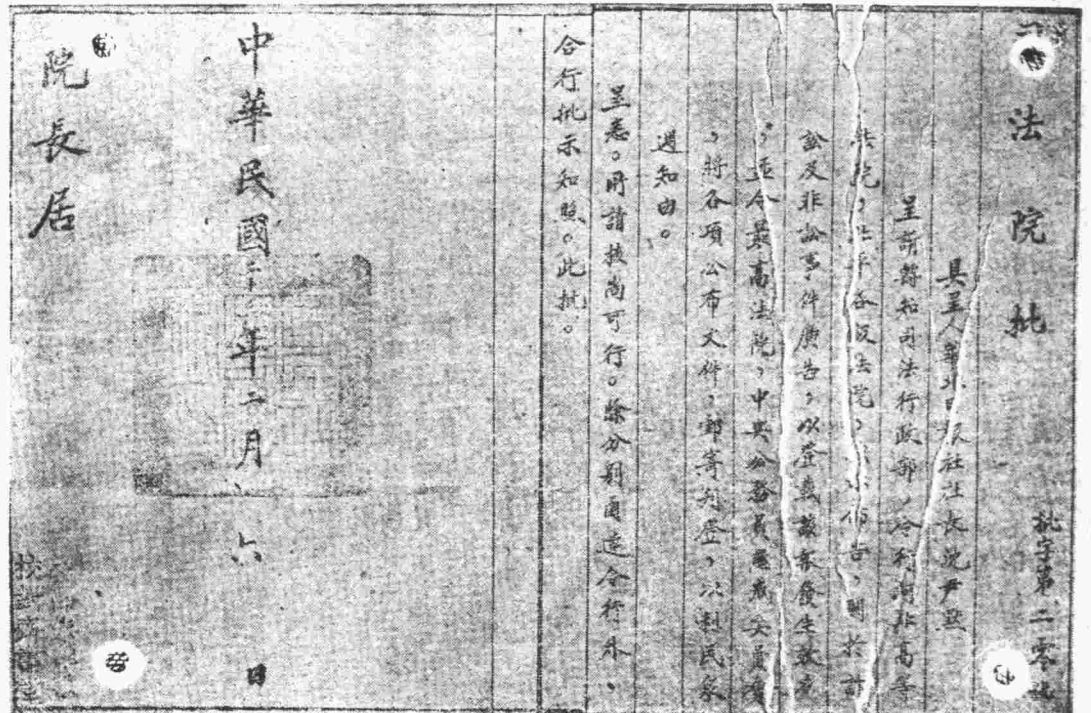 法院批
批字第二零號
具呈人華北日報社社長沈尹默
呈請轉知司法行政部，令行高等
法院，各級法院，佈告，關於訴
訟及非訟事件廣告，以登載該報發生效力
，並令最高法院，中央公務員懲戒委員會
，將各項公布文件，郵寄刊登，以利民眾
週知由。
呈悉。所請核尚可行。除分別函達令行外、
合行批示知照。此批。
中華民國二十二年二月六日
院長居